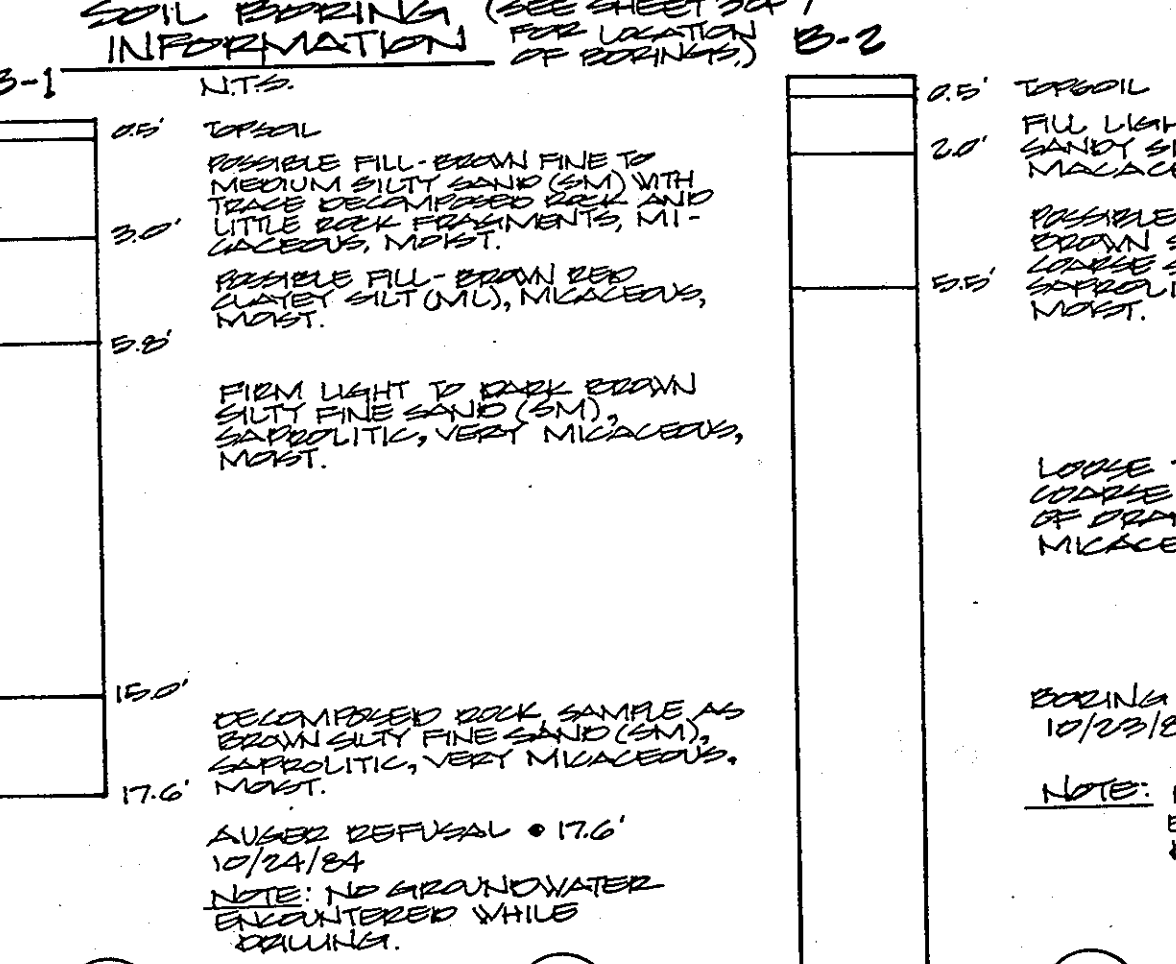 SOIL BORING (SEE SHEET 3 OF 7
INFORMATION FOR LOCATION
OF BORINGS.)
N.T.S.
B-1
0.5' TOPSOIL
POSSIBLE FILL-BROWN FINE TO
MEDIUM SILTY SAND (SM) WITH
TRACE DECOMPOSED ROCK AND
LITTLE ROCK FRAGMENTS, MI-
CACEOUS, MOIST.
3.0'
POSSIBLE FILL-BROWN RED
CLAYEY SILT (ML), MICACEOUS,
MOIST.
5.8'
FIRM LIGHT TO DARK BROWN
SILTY FINE SAND (SM),
SAPROLITIC, VERY MICACEOUS,
MOIST.
15.0'
DECOMPOSED ROCK, SAMPLE AS
BROWN SILTY FINE SAND (SM),
SAPROLITIC, VERY MICACEOUS.
MOIST.
17.6'
AUGER REFUSAL • 17.6'
10/24/84
NOTE: NO GROUNDWATER
ENCOUNTERED WHILE
DRILLING.
B-2
0.5' TOPSOIL
FILL LIGH
2.0' SANDY SI
MACACE
POSSIBLE
BROWN S
COARSE S
5.5' SAPROLI
MOIST.
LOOSE
COARSE
OF
MICACE
BORING
10/23/8
NOTE: